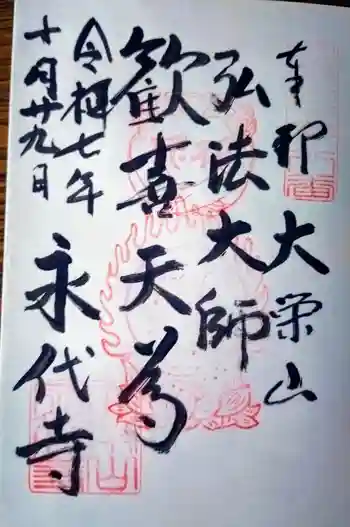 奉印 大栄山
弘法大師
歓喜天尊
永代寺
令和七年
十月廿九日